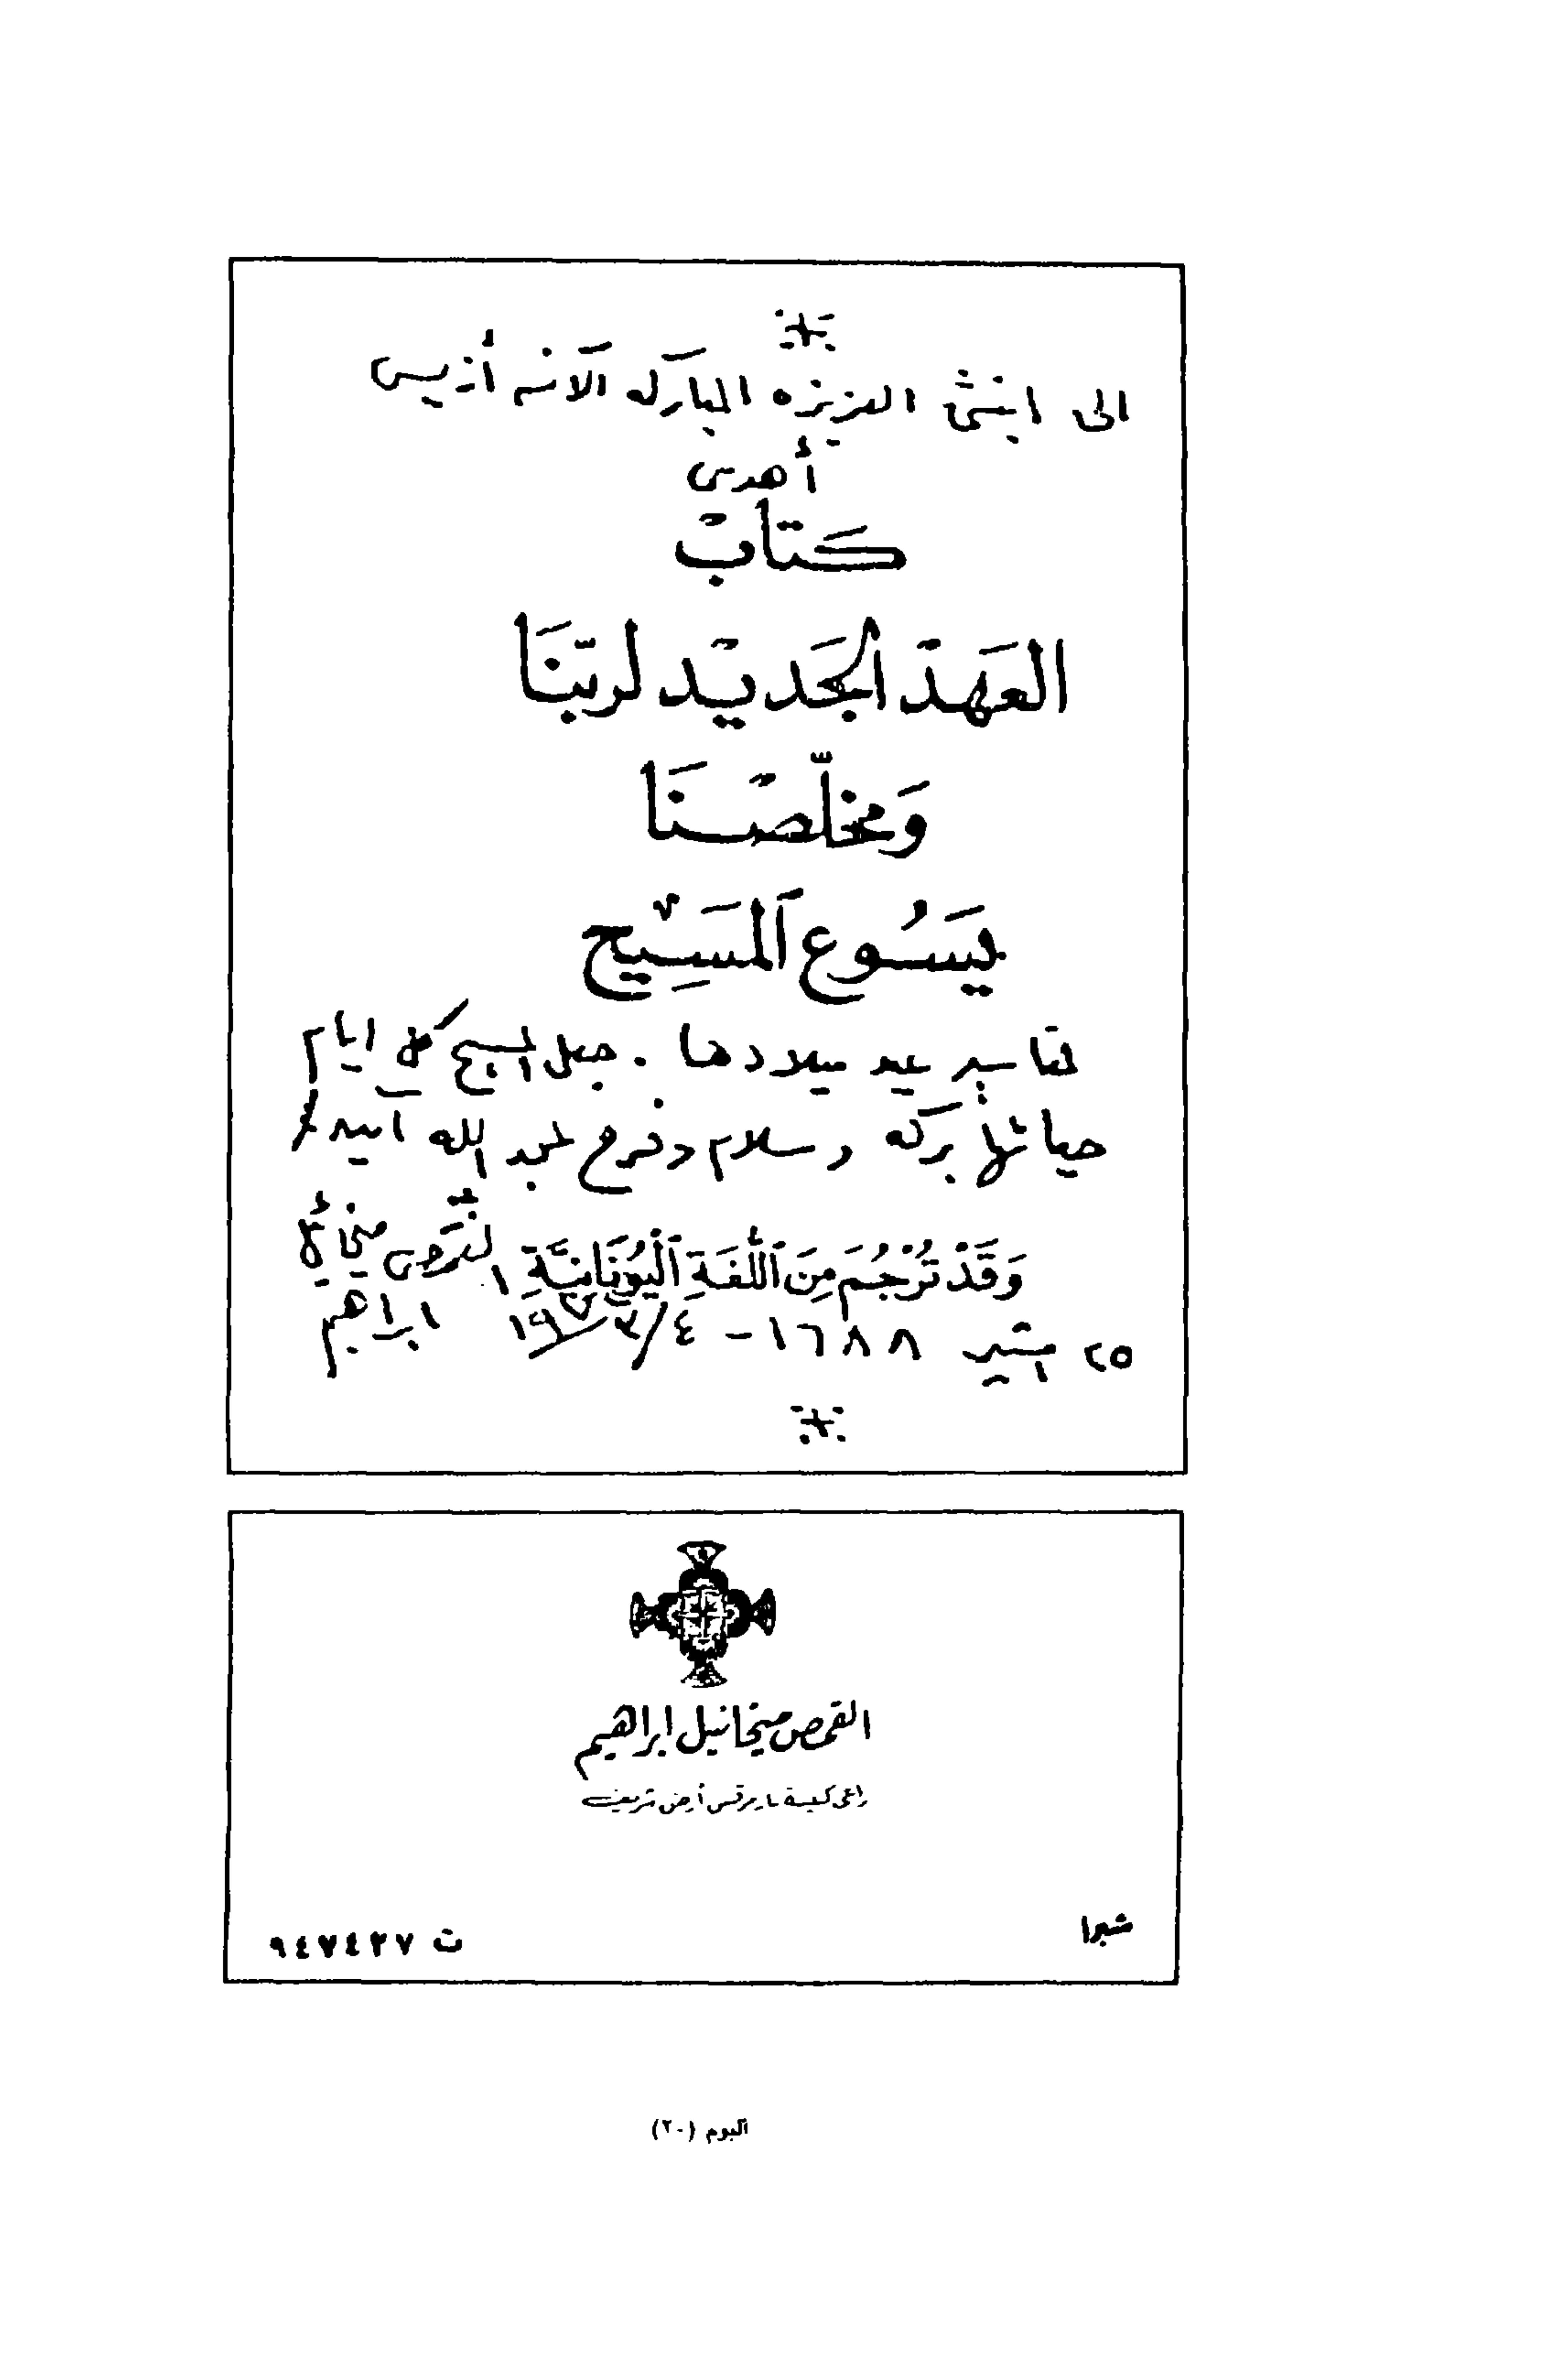 الى ابنتى العزيزه المباركه الآنسه أنيس
أهدى
كتابْ
العَهدْ الجَديْد لربّنَا
وَمخلّصْنَا
يَسُوع ٱلمَسِيْح
لمناسبة عيد ميلادها . جعل المسيح كل ايام
حياتها بركه وسلام وفرح لمجد الله آمين
وَقَدْ تُرْجُمَ مِنَ ٱللُّغَةِ ٱلْيُونَانِيَّةِ القمص ميخائيل
٢٥ امشير ١٦٨٨ - ٤/٣/١٩٧٢ ابراهيم
القمص ميخائيل ابراهيم
راعى كنيسة مارمرقس أرض شريف
شبرا
ت ٩٤٧٤٢٧
ألبوم (٢٠)